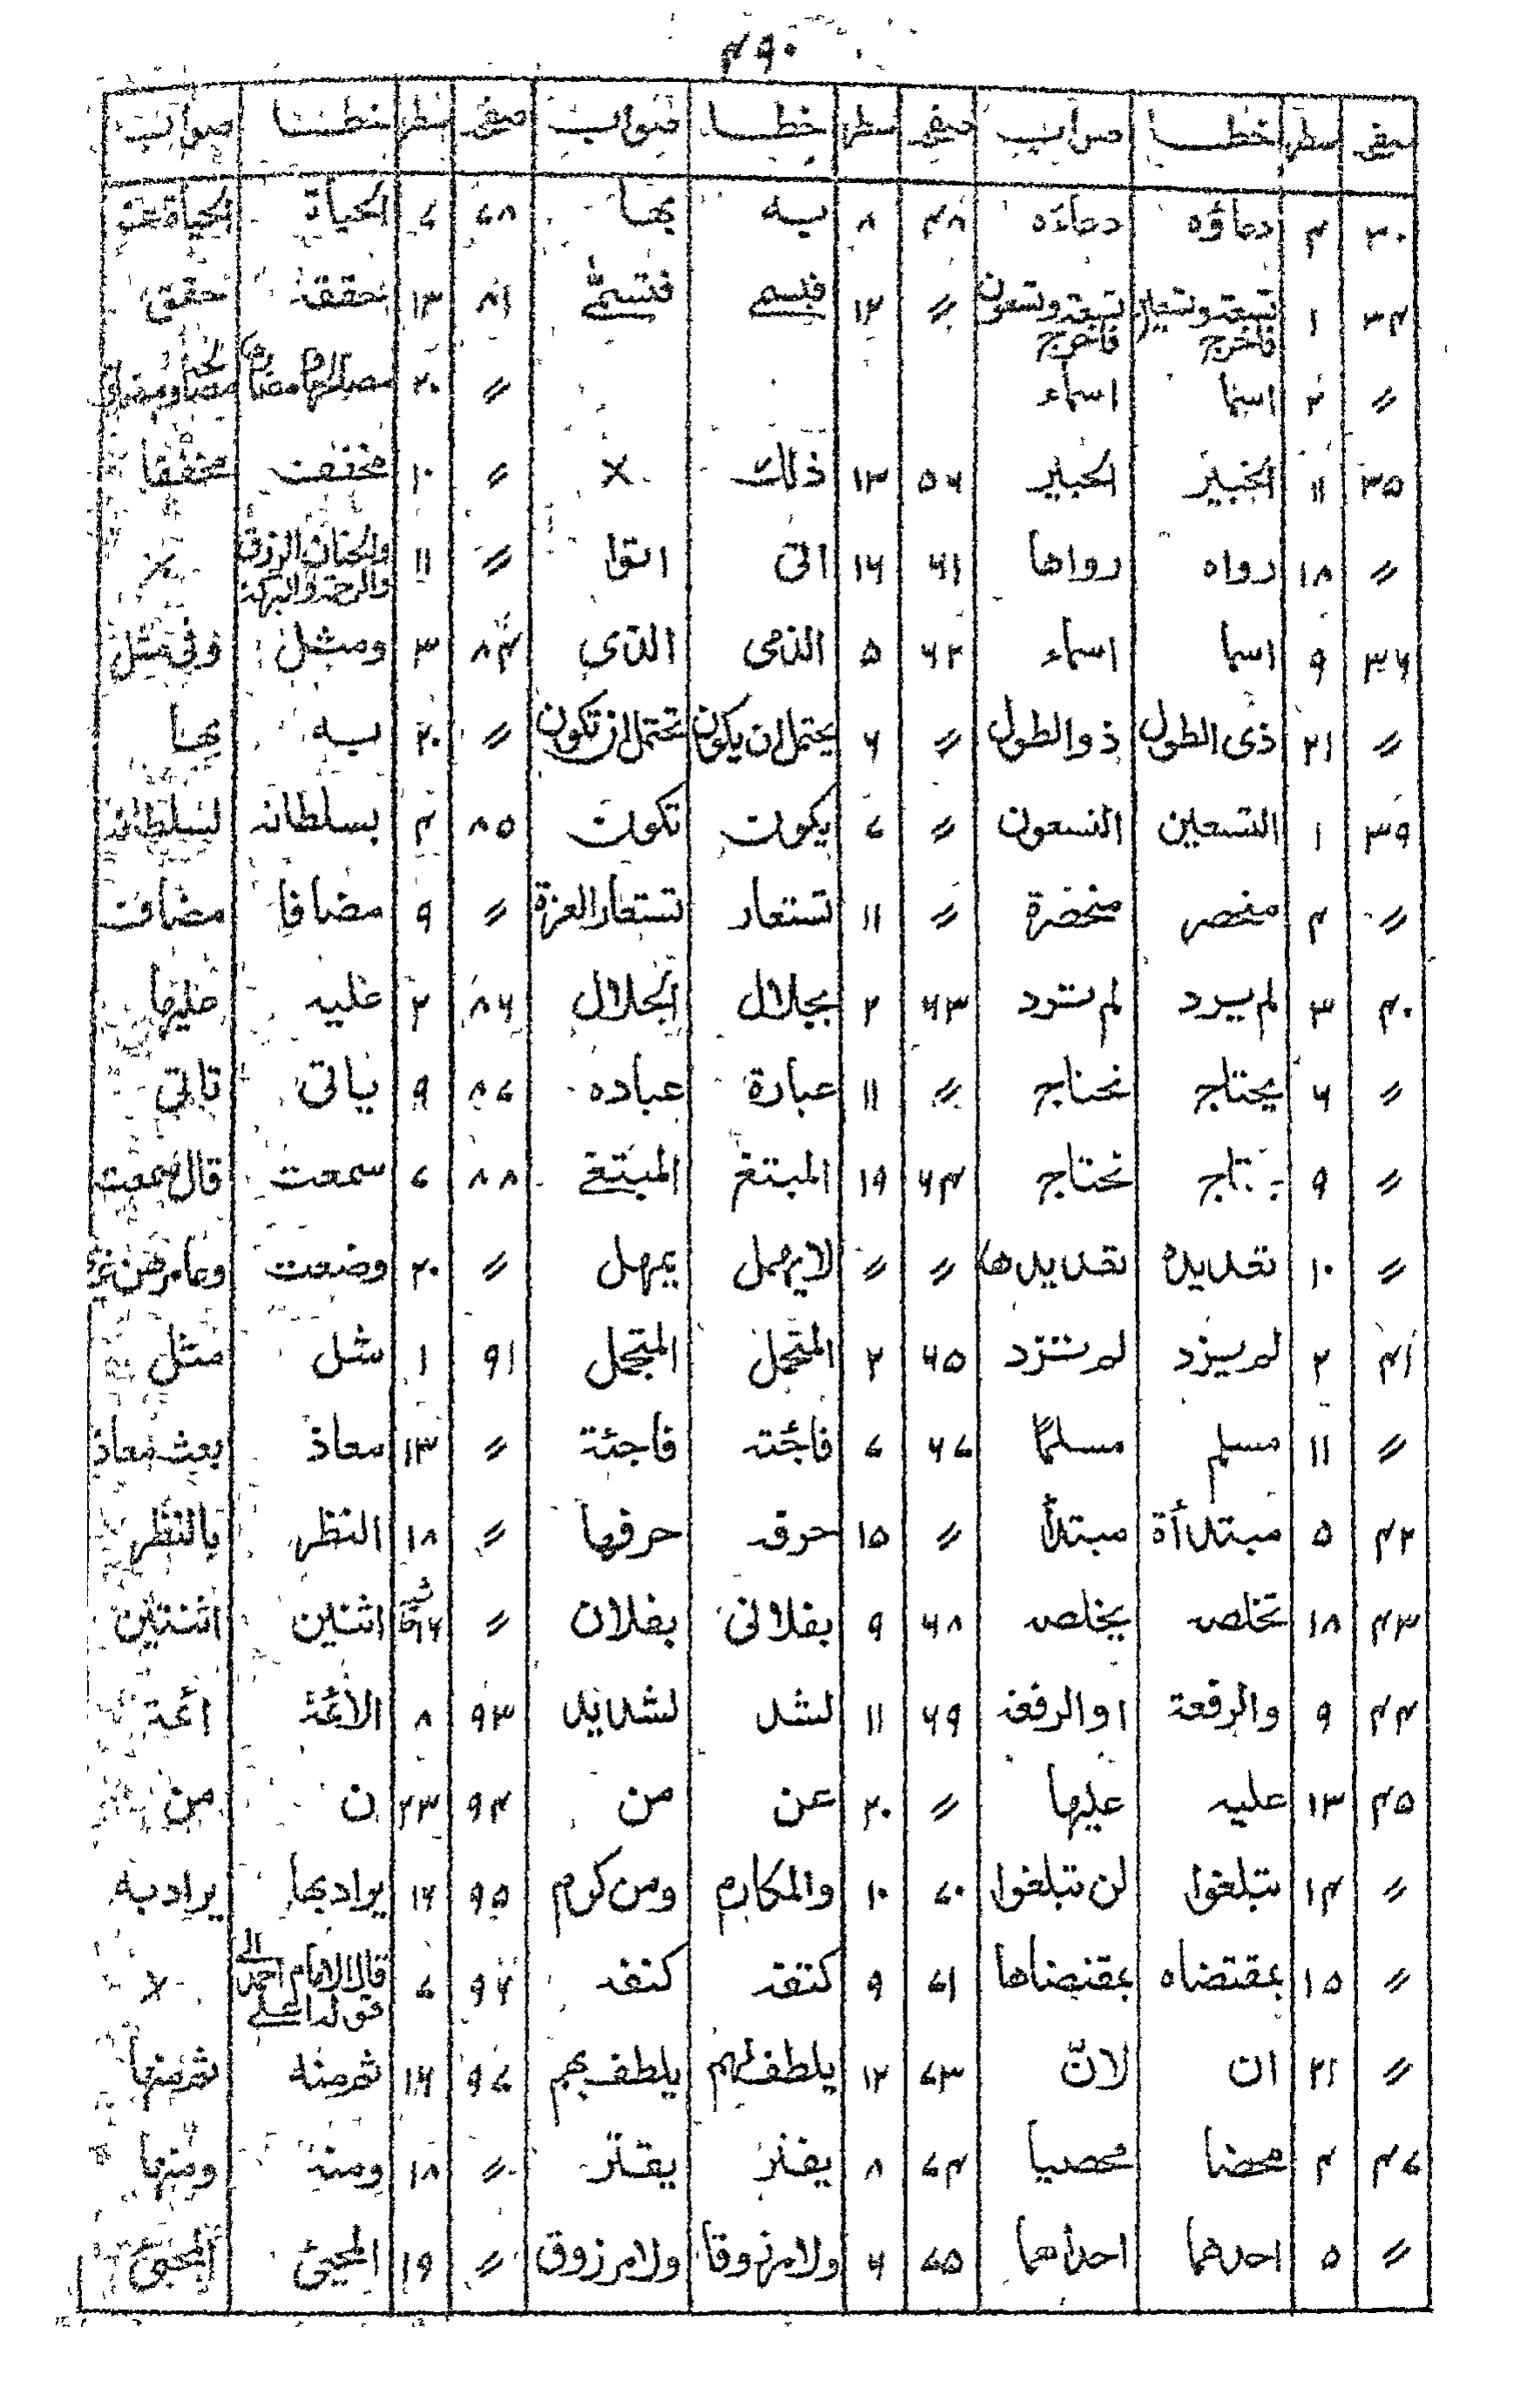 ۴۹۰
صفحہ سطر خطا صواب صفحہ سطر خطا صواب صفحہ سطر خطا صواب
۳۰ ۴ دعاؤہ دعاءہ ۴۸ ۸ بہ بھا ۷۸ ۷ الحیاۃ
۳۴ ۱ تسعۃ وتسعین فاخرج تسعۃ وتسعون فاخرج 〃 ۱۲ فبسمی فتسمی ۸۱ ۱۳ حققہ حقق
〃 ۲ اسما اسماء 〃 ۲۰
۳۵ ۱۱ الخبیر الخبیر ۵۶ ۱۳ ذلك × 〃 ۱۰ مخففت مخففا
〃 ۱۸ رواہ رواها ۶۱ ۱۶ اتی اتوا 〃 ۱۱ والحنان الرزق والرحمۃ والبرکۃ ×
۳۶ ۹ اسما اسماء ۶۲ ۵ الذمی الذی ۸۴ ۳ ومثل وفی مثل
〃 ۲۱ ذی الطول ذو الطول 〃 ۶ یحتمل ان یکون تحتمل ان تکون 〃 ۲۰ بہ بھا
۳۹ ۱ التسعین التسعون 〃 ۷ یکون تکون ۸۵ ۴ بسلطانہ لسلطانہ
〃 ۴ منحصر منحصرة 〃 ۱۱ تستعار تستعار العزة 〃 ۹ مضافا مضاف
۴۰ ۳ لم یرد لم ترد ۶۳ ۲ بجلال الجلال ۸۶ ۲ علیہ علیها
〃 ۶ یحتاج نحتاج 〃 ۱۱ عبارة عبادہ ۸۷ ۹ یاتی تاتی
〃 ۹ نحتاج ۶۴ ۱۹ المبتغ المبتغی ۸۸ ۷ سمعت قال سمعت
〃 ۱۰ تعدیدہ تعدیدها 〃 〃 لا یمهل یمهل 〃 ۲۰ وضعت
۴۱ ۲ لم یزد لم تزد ۶۵ ۲ المتحمل المتجمل ۹۱ ۱ شل مثل
〃 ۱۱ مسلم مسلمًا ۶۷ ۷ فاجئتہ فاجئة 〃 ۱۳ معاذ بعث معاذ
۴۲ ۵ مبتدأة مبتدأ 〃 ۱۵ حرفہ حرفها 〃 ۱۸ النظر بالنظر
۴۳ ۱۸ تخلصہ یخلصہ ۶۸ ۹ بفلانی بفلان 〃 اثنین اثنتین
۴۴ ۹ والرفعة او الرفعة ۶۹ ۱۱ لشد لشدید ۹۳ ۸ الائمة ائمة
۴۵ ۱۳ علیہ علیها 〃 ۲۰ عن من ۹۴ ۲۳ ن من
〃 ۱۴ تبلغوا لن تبلغوا ۷۰ ۱۰ والمکارم ومن کرم ۹۵ ۱۶ یراد بھا یراد بہ
〃 ۱۵ بمقتضاہ بمقتضاها ۷۱ ۹ کنفہ کنفہ ۹۶ ۷ قال الامام احمد الی ×
〃 ۲۱ ان لانّ ۷۳ ۱۲ یلطف لهم یلطف بهم ۹۷ ۱۶ ثم منہ ثم منها
۴۷ ۴ محضا محصیا ۷۴ ۸ یفتر یقتر 〃 ۱۸ ومنہ ومنها
〃 ۵ احدهما احداهما ۷۵ ۶ ولا مرزوقا ولا مرزوق 〃 ۱۹ المحیی